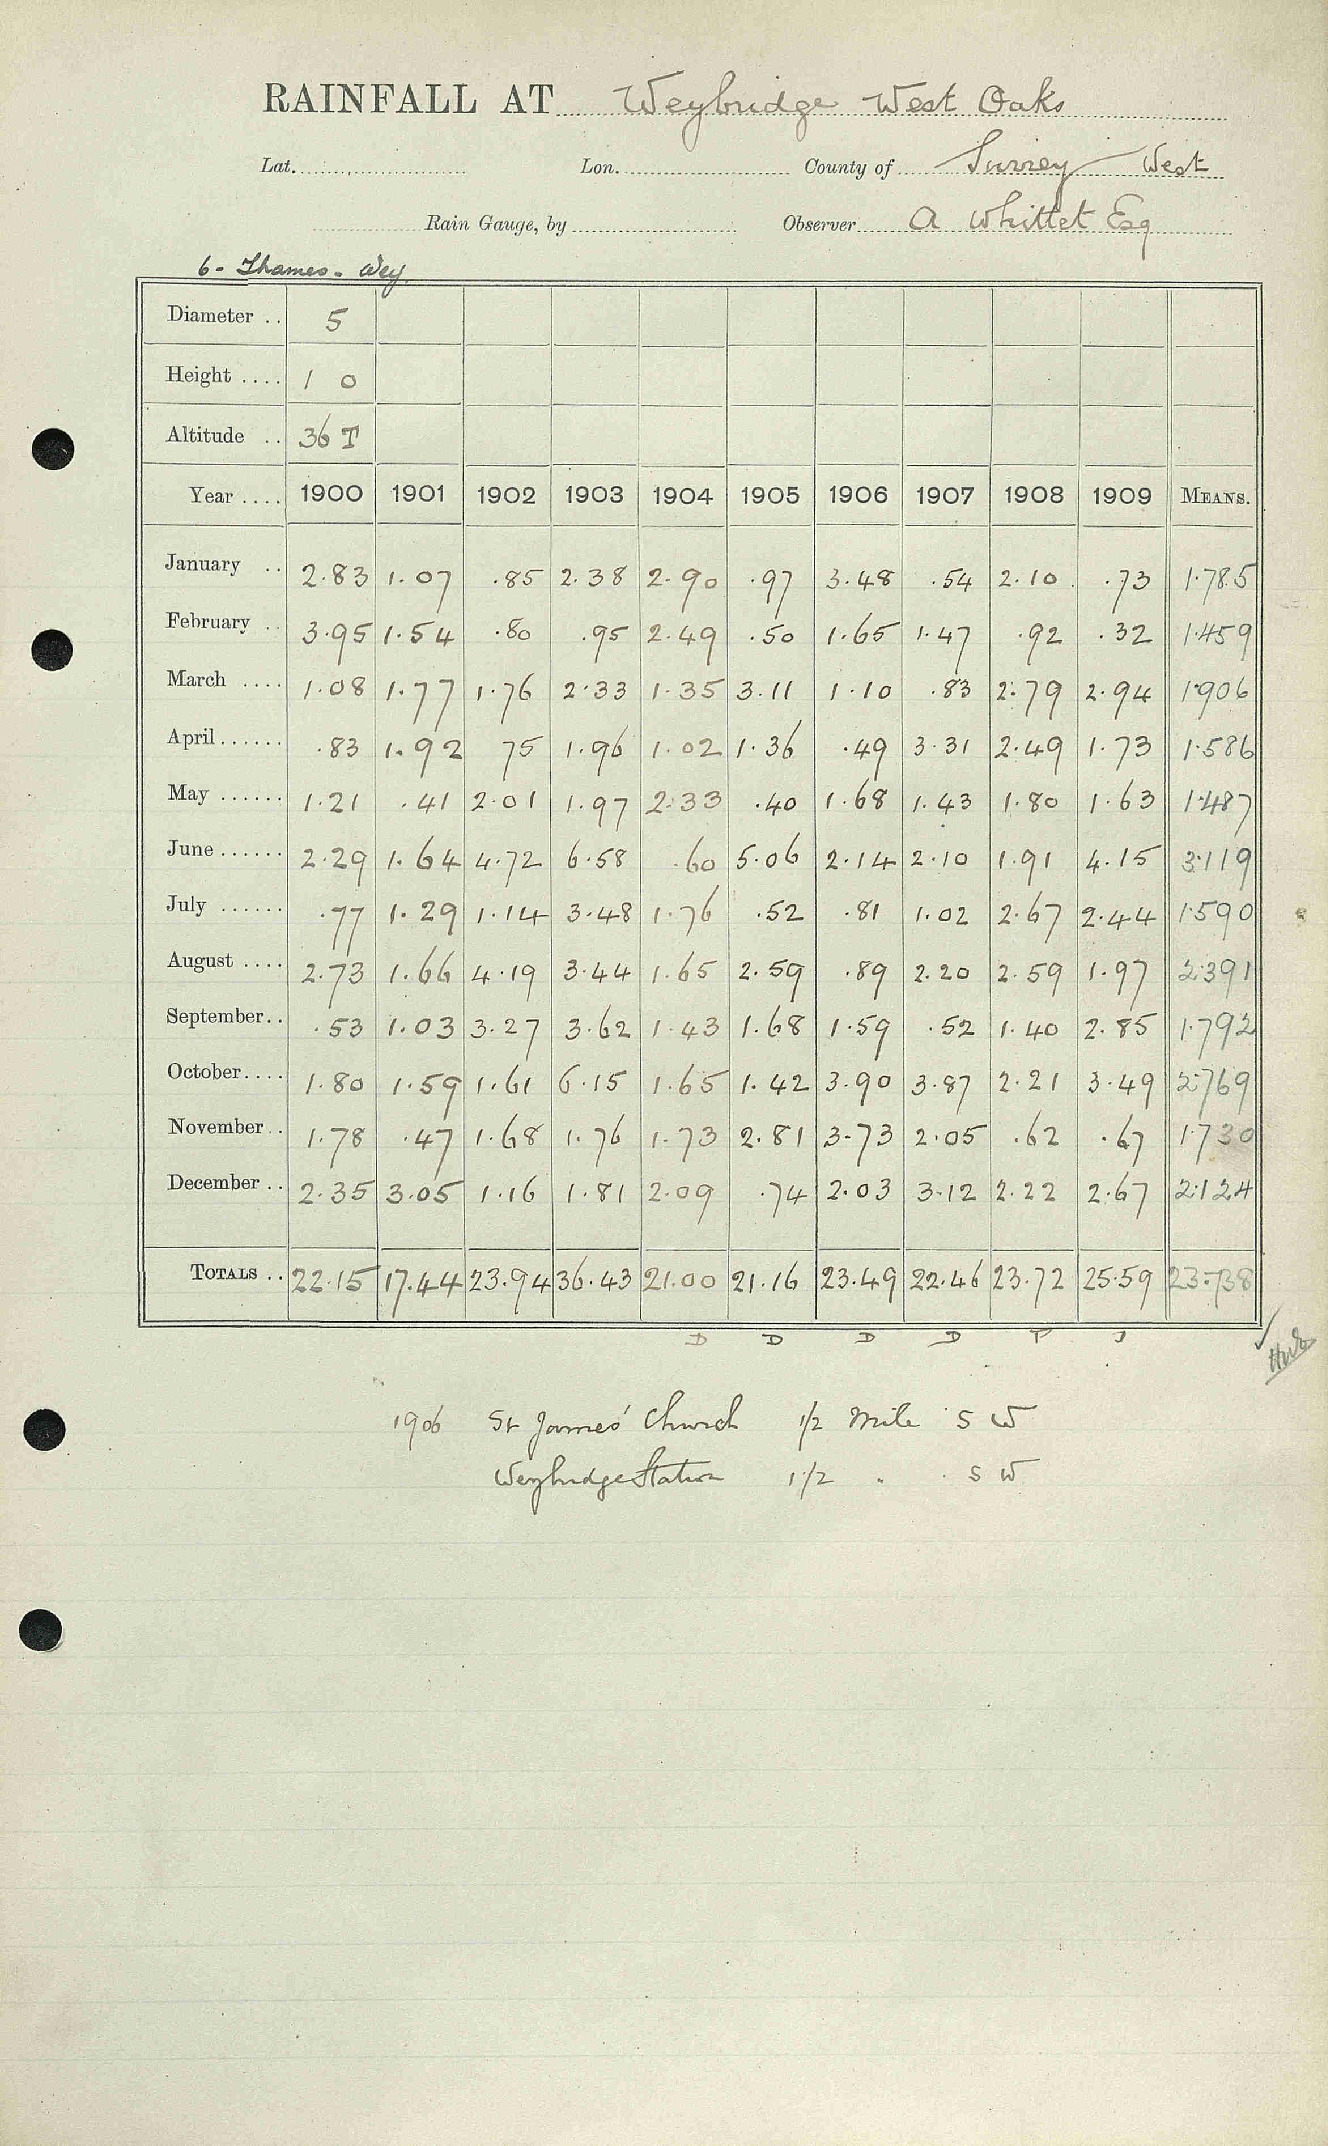 RAINFALL AT Weybridge West Oaks
Lat. Lon. County of Surrey West
Rain Gauge, by Observer A Whittet Esq
6 - Thames - Wey
Diameter .. 5
Height .... 1 0
Altitude .. 36 T
Year .... 1900 1901 1902 1903 1904 1905 1906 1907 1908 1909 MEANS.
January .. 2.83 1.07 .85 2.38 2.90 .97 3.48 .54 2.10 .73 1.785
February .. 3.95 1.54 .80 .95 2.49 .50 1.65 1.47 .92 .32 1.459
March .... 1.08 1.77 1.76 2.33 1.35 3.11 1.10 .83 2.79 2.94 1.906
April...... .83 1.92 75 1.96 1.02 1.36 .49 3.31 2.49 1.73 1.586
May ...... 1.21 .41 2.01 1.97 2.33 .40 1.68 1.43 1.80 1.63 1.487
June ...... 2.29 1.64 4.72 6.58 .60 5.06 2.14 2.10 1.91 4.15 3.119
July ...... .77 1.29 1.14 3.48 1.76 .52 .81 1.02 2.67 2.44 1.590
August .... 2.73 1.66 4.19 3.44 1.65 2.59 .89 2.20 2.59 1.97 2.391
September.. .53 1.03 3.27 3.62 1.43 1.68 1.59 .52 1.40 2.85 1.792
October.... 1.80 1.59 1.61 6.15 1.65 1.42 3.90 3.87 2.21 3.49 2.769
November .. 1.78 .47 1.68 1.76 1.73 2.81 3.73 2.05 .62 .67 1.730
December .. 2.35 3.05 1.16 1.81 2.09 .74 2.03 3.12 2.22 2.67 2.124
TOTALS .. 22.15 17.44 23.94 36.43 21.00 21.16 23.49 22.46 23.72 25.59 23.738
D D D D P J
1906 St James' Church 1/2 Mile S W
Weybridge Station 1 1/2 " S W